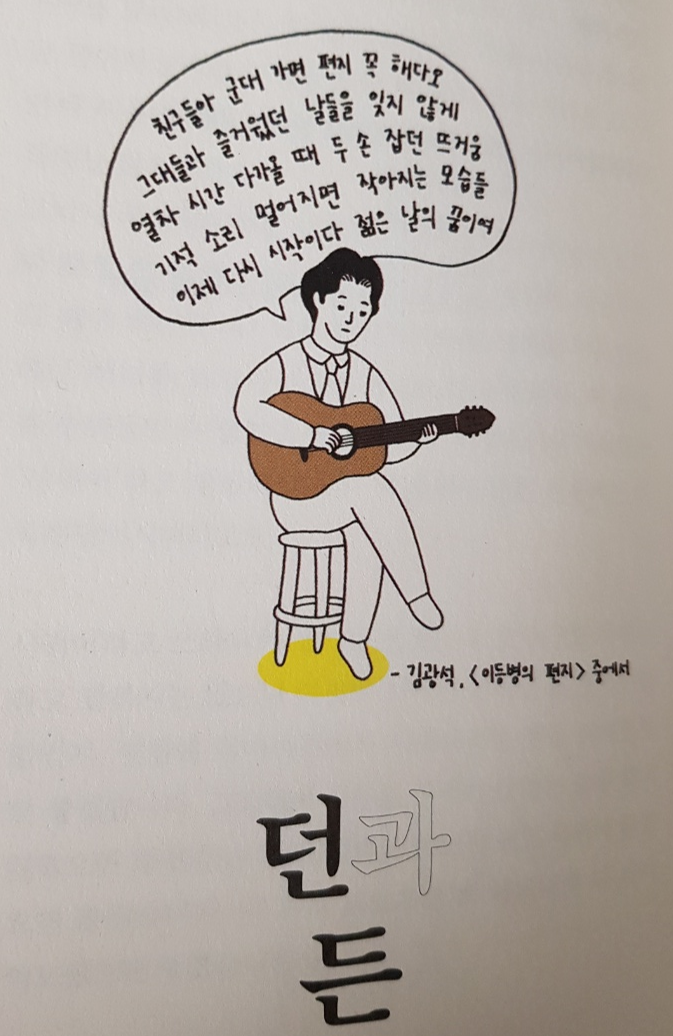 친구들아 군대 가면 편지 꼭 해다오
그대들과 즐거웠던 날들을 잊지 않게
열차 시간 다가올 때 두 손 잡던 뜨거움
기적 소리 멀어지면 작아지는 모습들
이제 다시 시작이다 젊은 날의 꿈이여
- 김광석, <이등병의 편지> 중에서
던과
든